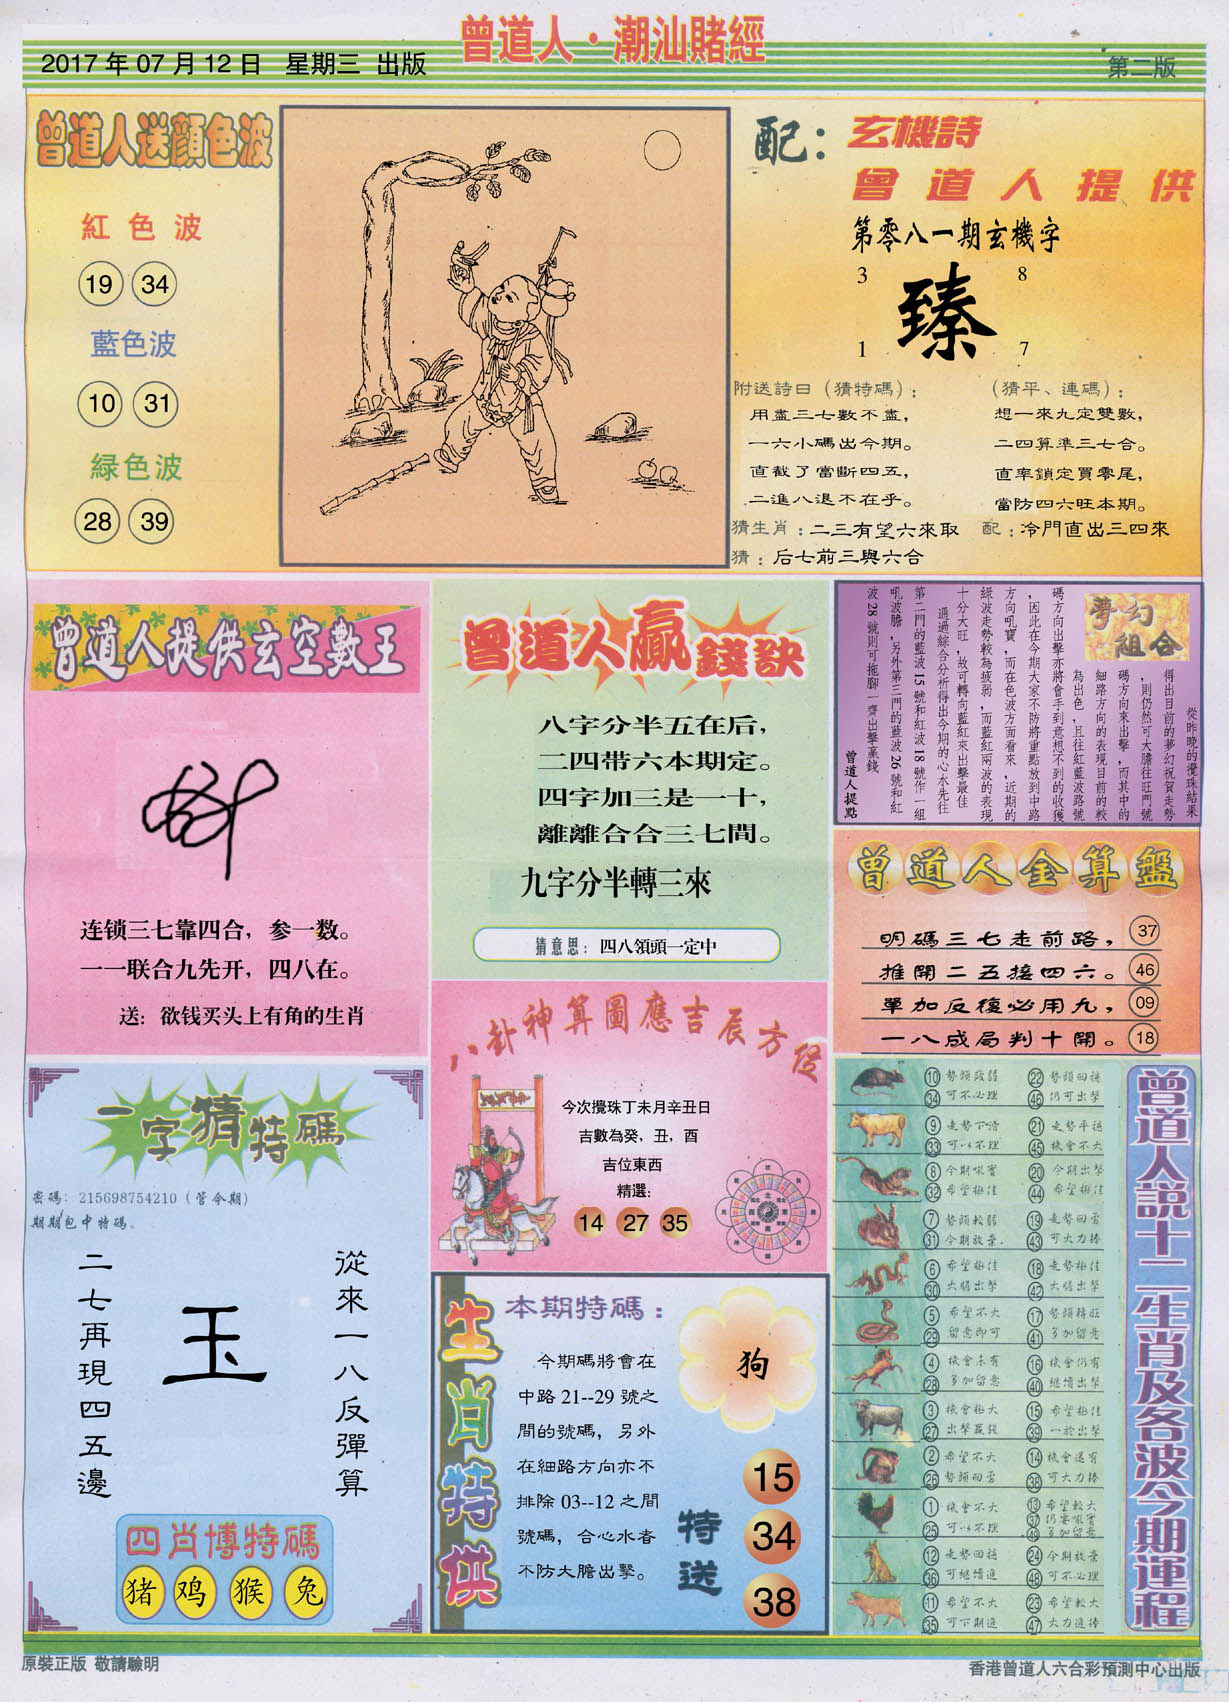 曾道人·潮汕賭經
2017年07月12日 星期三 出版
第二版
曾道人送顏色波
紅色波
19 34
藍色波
10 31
緑色波
28 39
配：玄機詩
曾道人提供
第零八一期玄機字
3 8
臻
1 7
附送詩曰（猜特碼）：
用盡三七數不盡，
一六小碼出今期。
直截了當斷四五，
二進八退不在乎。
（猜平、連碼）：
想一來九定雙數，
二四算準三七合。
直率鎖定買零尾，
當防四六旺本期。
猜生肖：二三有望六來取
配：冷門直出三四來
猜：后七前三與六合
曾道人提供玄空數王
连锁三七靠四合，参一数。
一一联合九先开，四八在。
送：欲钱买头上有角的生肖
曾道人贏錢訣
八字分半五在后，
二四带六本期定。
四字加三是一十，
離離合合三七間。
九字分半轉三來
猜意思：四八領頭一定中
夢幻組合
從昨晚的攪珠結果
得出目前的夢幻祝賀走勢
，則仍然可大膽往旺門號
碼方向來出擊，而其中的
細路方向的表現目前的較
為出色，且往紅藍波路號
碼方向出擊亦將會手到意想不到的收獲
，因此在今期大家不防將重點放到中路
方向吼寶，而在色波方面看來，近期的
綠波走勢較為疲弱，而藍紅兩波的表現
十分大旺，故可轉向藍紅來出擊最佳
通過綜合分析得出今期的心水先往
第二門的藍波15號和紅波18號作一組
吼波膽，另外第三門的藍波26號和紅
波28號則可拖腳一齊出擊贏錢
曾道人提點
曾道人金算盤
明碼三七走前路， 37
推開二五接四六。 46
單加反復必用九， 09
一八成局判十開。 18
一字猜特碼
密碼：215698754210（管令期）
期期包中特碼。
從來一八反彈算
玉
二七再現四五邊
四肖博特碼
猪 鸡 猴 兔
八卦神算圖應吉辰方位
今次攪珠丁未月辛丑日
吉數為癸，丑，酉
吉位東西
精選：
14 27 35
生肖特供
本期特碼：
今期碼將會在
中路21--29號之
間的號碼，另外
在細路方向亦不
排除03--12之間
號碼，合心水者
不防大膽出擊。
狗
特送
15
34
38
曾道人説十二生肖及各波今期運程
10 34 勢頭疲弱 可不必理 22 46 勢頭回穩 仍可出擊
9 33 走勢下滑 可以不理 21 45 走勢平穩 機會不大
8 32 今期吼寶 希望極佳 20 44 今期出擊 希望極佳
7 31 勢頭較弱 今期放棄 19 43 走勢回雲 可大力捧
6 30 希望極佳 大膽出擊 18 42 走勢極佳 大膽出擊
5 29 希望不大 留意即可 17 41 勢頭轉旺 多加留意
4 28 機會未有 多加留意 16 40 機會仍有 繼續出擊
3 27 機會極大 出擊贏錢 15 39 希望極佳 一於出擊
2 26 希望不大 勢頭回雲 14 38 機會還有 可大力捧
1 25 機會不大 可以不理 13 37 49 希望較大 仍要吼實 多加留意
12 36 走勢回穩 可繼續追 24 48 今期放棄 可不必理
11 35 希望不大 可下期追 23 47 希望較大 大力追捧
原裝正版 敬請驗明
香港曾道人六合彩預測中心出版